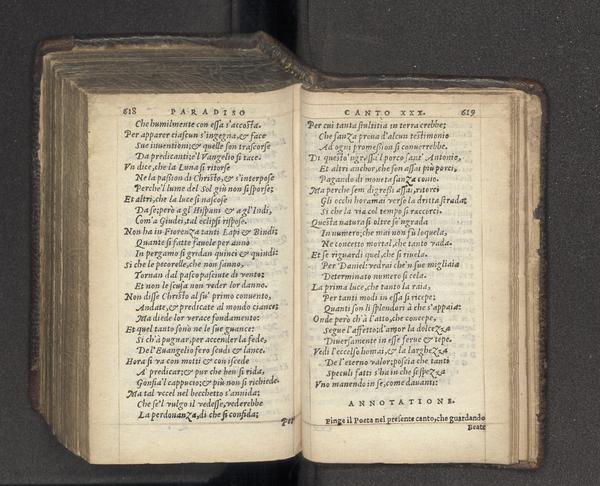 618 PARADISO
Che humilmente con essa s'accosta.
Per apparer ciascun s'ingegna, & face
Sue inuentioni; & quelle son trascorse
Da predicanti; e'l Vangelio si tace.
Vn dice, che la Luna si ritorse
Ne la passion di Christo, & s'interpose
Perche'l lume del Sol giù non si sporse;
Et altri, che la luce si nascose
Da se; però a gl'Hispani & a gl'Indi,
Com'a Giudei, tal eclipsi rispose.
Non ha in Fiorenza tanti Lapi & Bindi;
Quante si fatte fauole per anno
In pergamo si gridan quinci & quindi:
Si che le pecorelle, che non sanno,
Tornan dal pasco pasciute di vento;
Et non le scusa non veder lor danno.
Non disse Christo al su' primo conuento,
Andate, & predicate al mondo ciance;
Ma diede lor verace fondamento:
Et quel tanto sonò ne le sue guance:
Si ch'à pugnar, per accender la fede,
De l'Euangelio fero scudi & lance.
Hora si va con motti & con iscede
A predicar; & pur che ben si rida,
Gonfia'l cappucio; & più non si richiede.
Ma tal vccel nel becchetto s'annida;
Che se'l vulgo il vedesse, vederebbe
La perdonanza, di che si confida;
Per
CANTO XXX. 619
Per cui tanta stultitia in terra crebbe;
Che sanza proua d'alcun testimonio
Ad ogni promession si conuerrebbe.
Di questo 'ngrassa'l porco sant'Antonio,
Et altri anchor, che son assai più porci,
Pagando di moneta sanza conio.
Ma perche sem digressi assai, ritorci
Gli occhi horamai verso la dritta strada;
Si che la via col tempo si raccorci.
Questa natura si oltre s'ngrada
In numero; che mai non fù loquela,
Ne concetto mortal, che tanto vada.
Et se riguardi quel, che si riuela
Per Daniel: vedrai che'n sue migliaia
Determinato numero si cela.
La prima luce, che tanto la raia,
Per tanti modi in essa si ricepe;
Quanti son li splendori à che s'appaia:
Onde però ch'à l'atto, che concepe,
Segue l'affetto; d'amor la dolcezza
Diuersamente in esse ferue & tepe.
Vedi l'eccelso homai, & la larghezza
De l'eterno valor; poscia che tanti
Speculi fatti s'ha in che si spezza
Vno manendo in se, come dauanti:
ANNOTATIONE.
Pinge il Poeta nel presente canto, che guardando
Beate